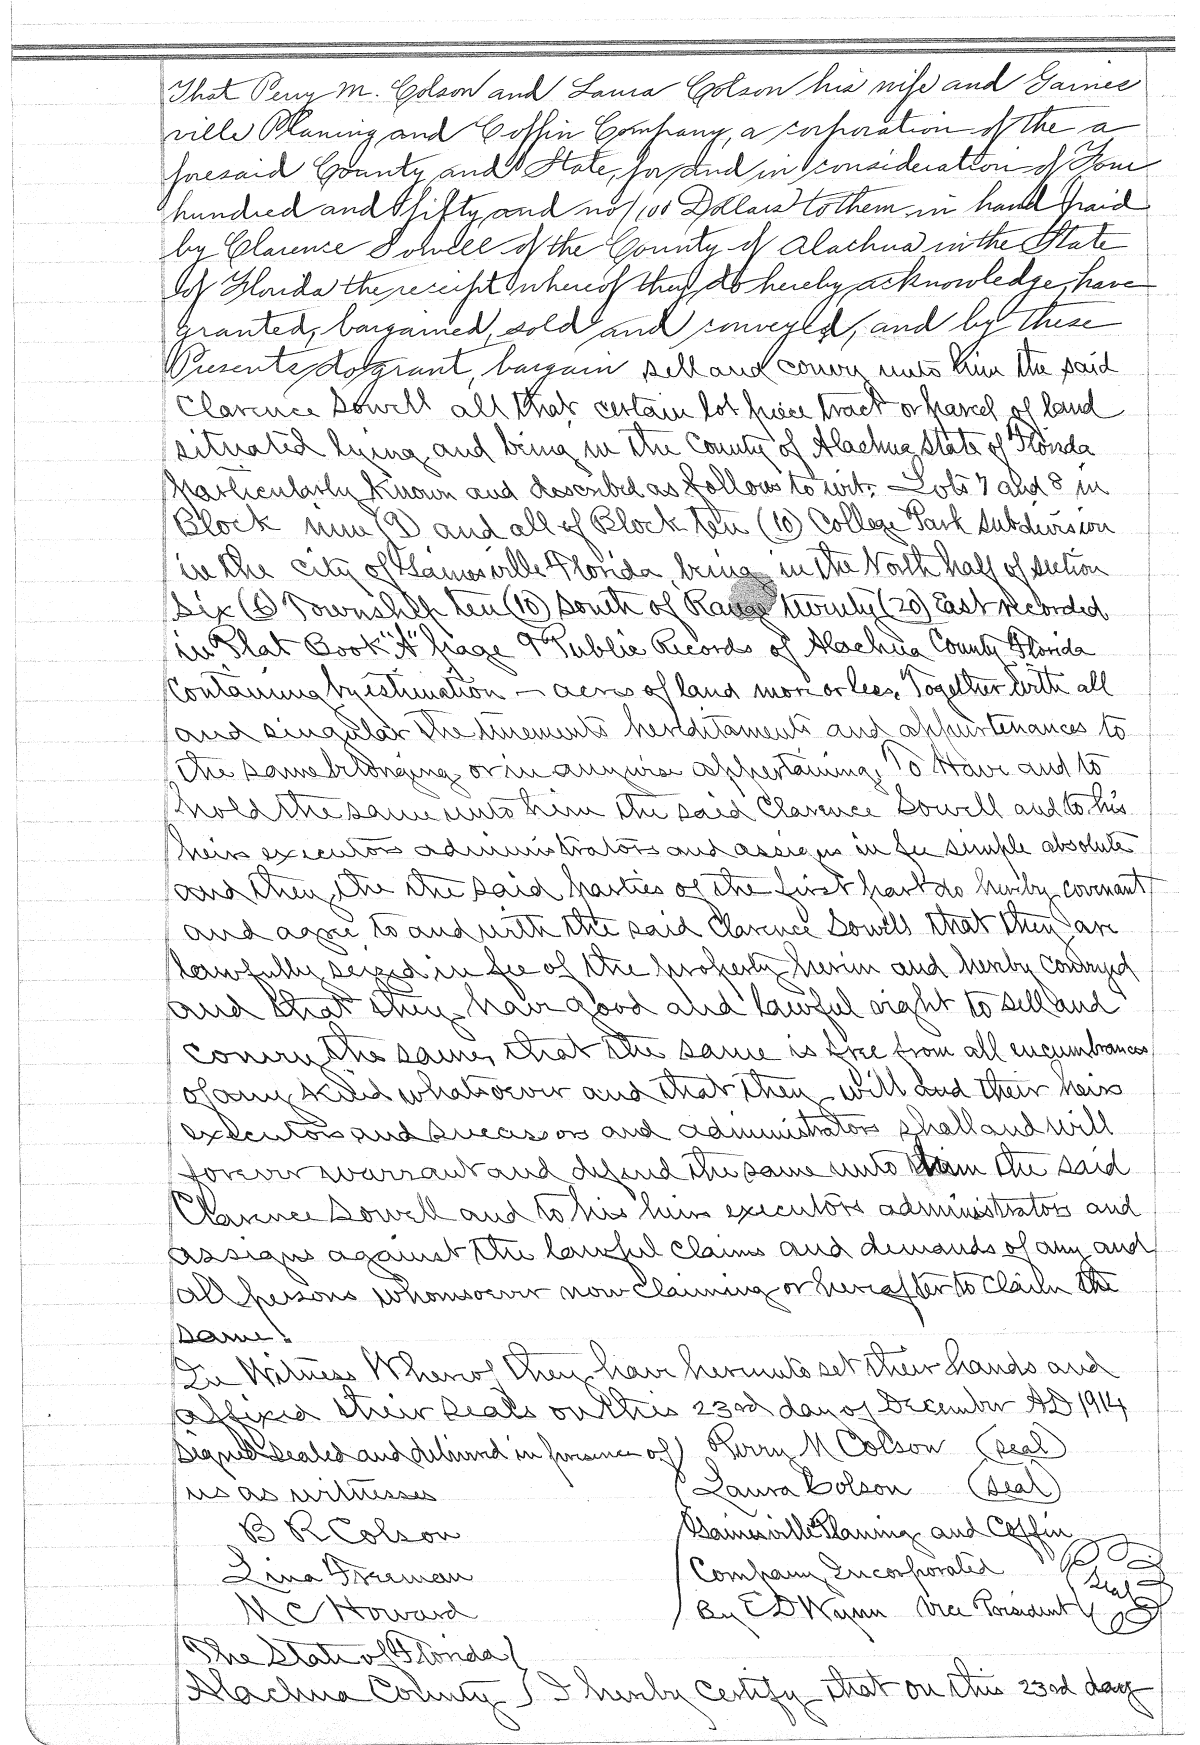 That Perry M. Colson and Laura Colson his wife and Gaines
ville Planing and Coffin Company, a corporation of the a
foresaid County and State, for and in consideration of Four
hundred and fifty and no/100 Dollars to them in hand paid
by Clarence Sowell of the County of Alachua in the State
of Florida the receipt whereof they do hereby acknowledge, have
granted, bargained, sold and conveyed, and by these
Presents do grant, bargain sell and convey unto him the said
Clarence Sowell all that certain lot piece tract or parcel of land
situated lying and being in the County of Alachua State of Florida
particularly known and described as follows to wit: Lots 7 and 8 in
Block nine (9) and all of Block ten (10) College Park subdivision
in the city of Gainesville Florida, being in the North half of section
six (6) Township ten (10) south of Range twenty (20) East recorded
in Plat Book "A" page 9 Public Records of Alachua County Florida
Containing by estimation — acres of land more or less. Together with all
and singular the tenements hereditaments and appurtenances to
the same belonging or in anywise appertaining, To Have and to
hold the same unto him the said Clarence Sowell and to his
heirs executors administrators and assigns in fee simple absolute
and they the the said parties of the first part do hereby covenant
and agree to and with the said Clarence Sowell that they are
lawfully seized in fee of the property herein and hereby conveyed
and that they have good and lawful right to sell and
convey the same, that the same is free from all encumbrances
of any kind whatsoever and that they will and their heirs
executors and successors and administrators shall and will
forever warrant and defend the same unto him the said
Clarence Sowell and to his heirs executors administrators and
assigns against the lawful claims and demands of any and
all persons whomsoever now claiming or hereafter to claim the
same.
In Witness Whereof they have hereunto set their hands and
affixed their seals on this 23rd day of December AD 1914
Signed sealed and delivered in presence of) Perry M Colson (seal)
us as witnesses ( Laura Colson (seal)
B R Colson Gainesville Planing and Coffin
Lina Freeman Company, Incorporated
M C Howard By E D Wynn Vice President (Seal)
The State of Florida (
Alachua County ) I hereby certify that on this 23rd day